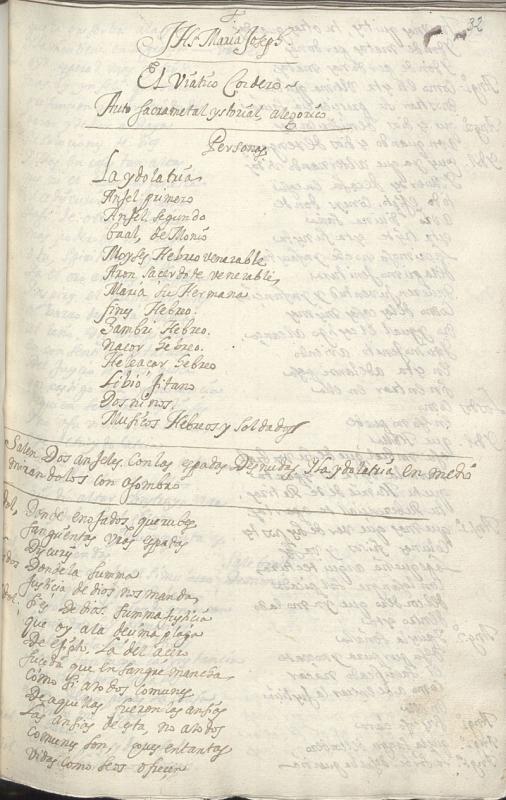 32
JHs Maria Joseph
El Viatico Cordero
Auto Sacrametal ystorial alegorico
Personas
La ydolatria
Anjel primero
Anjel segundo
baal, demonio
Moyses Hebreo venerable
Aron sacerdote venerable
Maria su Hermana
fines Hebreo.
Zambri Hebreo.
Nacor Hebreo.
Heleaçar Hebreo
Libio jitano
Dos niños.
Musicos Hebreos y soldados
Salen Dos anjeles. Con las espadas Desnudas, y La ydolatria en medio
mirandolos con asombro
Donde enojados querubes
sangrientas vras espadas
Discurren
Donde la summa
justicia de dios nos manda,
que oy a la decima plaga
De
suceda que en sangre
Como si
De aquellas fueron las ansias
Las ansias de esta, no a dos
Comunes son, pues en tantas
vidas Como